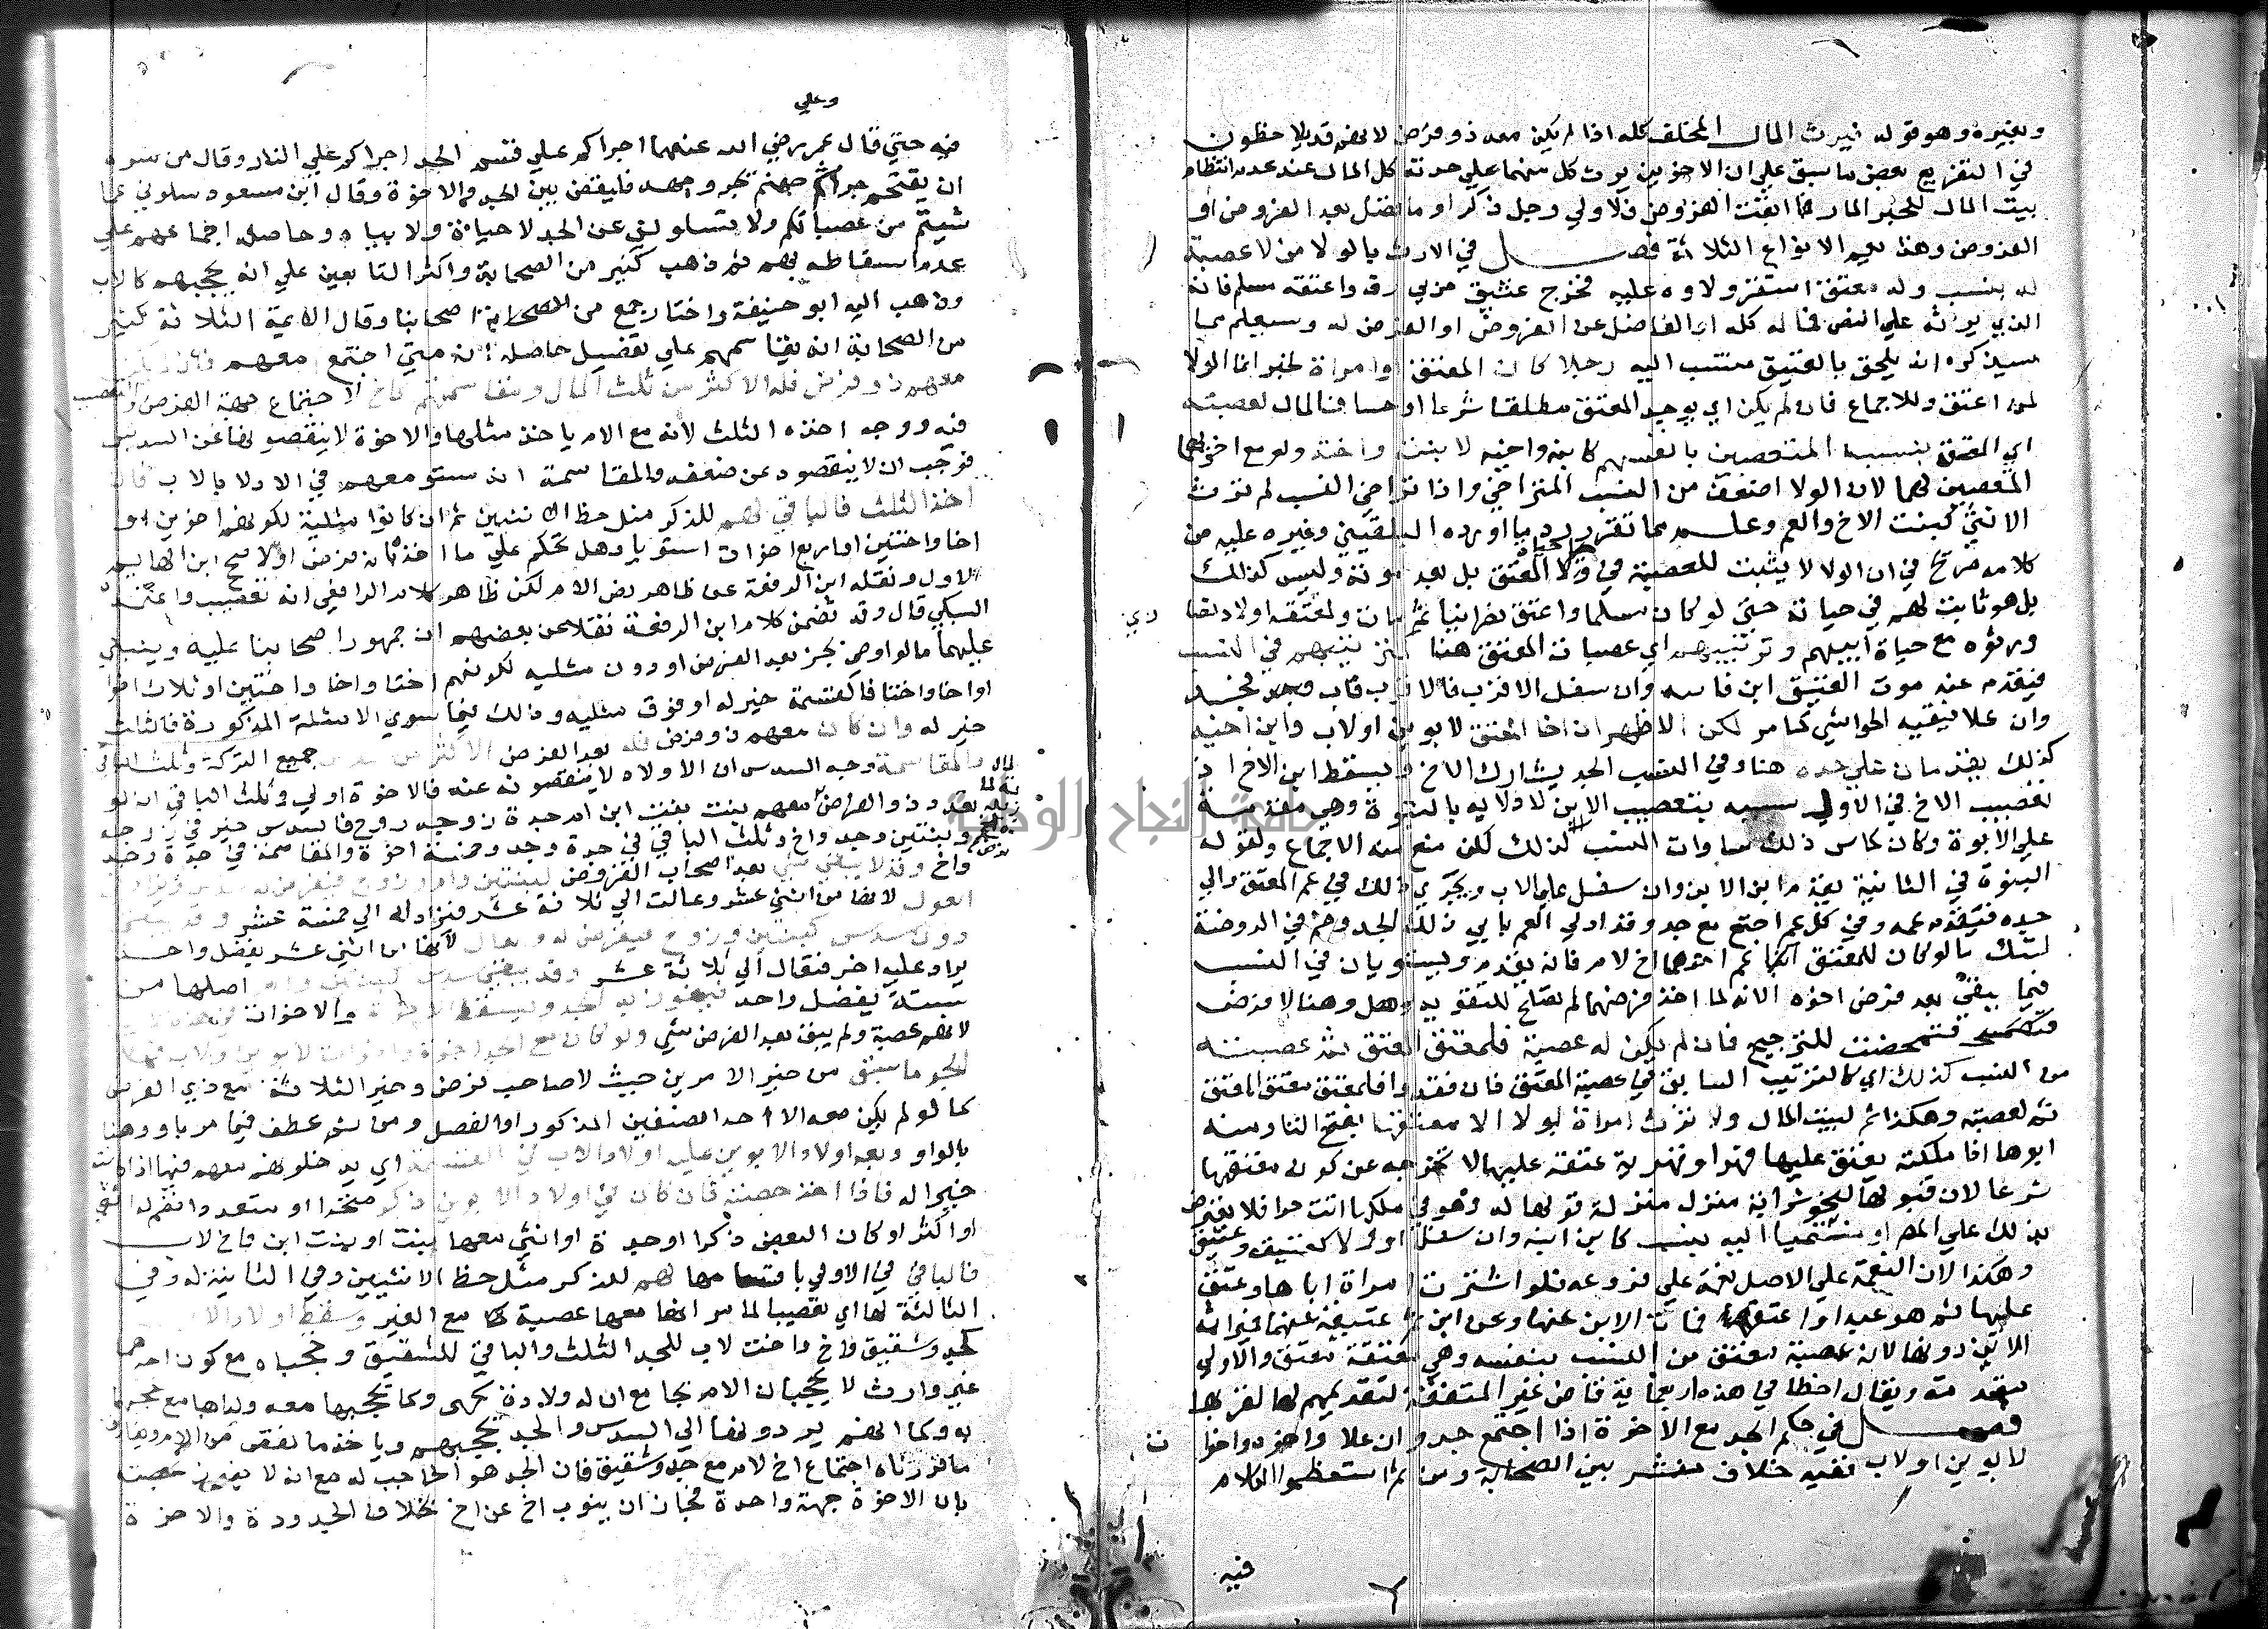 وبغيره وهو قوله فيرث المال المخلف كله اذا لم يكن معه ذو فرض لانهم قد يلاحظون
في التفريع بعض ما سبق علي ان الاخوين يرث كل منهما علي حدته كل المال عند عدم انتظام
بيت المال للخبر المار ما ابقت الفروض فلاولي رجل ذكر او ما فضل بعد الفروض او
الفروض وهذا يعم الانواع الثلاثة فصل في الارث بالولا من لا عصبة
له بنسب وله معتق استقر ولاوه عليه فخرج عتيق حربي رق واعتقه مسلم فانه
الذي يرثه علي النص فماله كله او الفاضل عن الفروض او الفرض له وسيعلم مما
سيذكره انه يلحق بالعتيق منتسب اليه رجلا كان المعتق او امراة لخبر انما الولا
لمن اعتق وللاجماع فان لم يكن اي يوجد المعتق مطلقا شرعا او حسا فالمال لعصبته
اي المعتق بنسب المتعصبين بانفسهم كابنه واخيه لا بنته واخته ولو مع اخويهما
المعصبين لهما لان الولا اضعف من النسب المتراخي واذا تراخي النسب لم ترث
الانثي كبنت الاخ والعم وعلم مما تقرر رد ما اورده البلقيني وغيره عليه من
كلامه صريح في ان الولا لا يثبت للعصبة في حياة المعتق بل بعد موته وليس كذلك
بل هو ثابت لهم في حياته حتي لو كان مسلما واعتق نصرانيا ثم مات ولمعتقه اولاد نصا ري
ورثوه مع حياة ابيهم وترتيبهم اي عصبات المعتق هنا كترتيبهم في النسب
فيقدم عند موت العتيق ابن فابنه وان سفل الاقرب فالاقرب فاب فجد
وان علا فبقية الحواشي كما مر لكن الاظهر ان اخا المعتق لابوين او لاب وابن اخيه
كذلك يقدمان علي جده هنا وفي النسب الجد يشارك الاخ ويسقط ابن الاخ اذ
تعصيب الاخ في الاولي يشبه تعصيب الابن لادلايه بالبنوة وهي مقدمة
علي الابوة وكان قياس ذلك مساوات النسب لذلك لكن منع منه الاجماع ولقوله
البنوة في الثانية يقدم ابن الابن وان سفل علي الاب ويجري ذلك في عم المعتق وابي
جده فيقدم عمه وفي كل عم اجتمع مع جد وقد ادلي العم بابي ذلك الجد وضم في الروضة
لتلك ما لو كان للمعتق ابنا عم احدهما اخ لام فانه يقدم ويستويان في النسب
فيما يبقي بعد فرض اخوه الام لانه لما اخذ فرضها لم تصلح للتقوية وهنا لا فرض
فتمحضت للترجيح فان لم يكن له عصبة فلمعتق المعتق ثم عصبته
من النسب كذلك اي كالترتيب السابق في عصبة المعتق فان فقدوا فلمعتق معتق المعتق
ثم لعصبته وهكذا ثم لبيت المال ولا ترث امراة بولا الا معتقها بفتح التا ومنه
ابوها اذا ملكته يعتق عليها قهرا وقهرية عتقه عليها لا تخرجه عن كونه معتقها
شرعا لان قبولها لنحو شرايه منزل منزلة قولها له وهو في ملكها انت حر فلا يعترض
بذلك علي المصر او منتميا اليه بنسب كابن ابنه وان سفل او ولا كعتيقه وعتيق
وهكذا لان النعمة علي الاصل نعمة علي فروعه فلو اشترت امراة اباها وعتق
عليها ثم هو عبدا واعتقه فمات الاب عنها وعن ابن ثم عتيقه عنهما فميراثه
للابن دونها لانه عصبة معتق من النسب بنفسه وهي معتقة معتق والاولي
مقدمة ويقال اخطا في هذه اربعماية قاض غير المتفقهة لتقديمهم لها لقربها
فصل في حكم الجد مع الاخوة اذا اجتمع جد وان علا واخوه واخوا ت
لابوين او لاب ففيه خلاف منتشر بين الصحابة ومن ثم استعظموا الكلام
فيه
وعلي
فيه حتي قال عمر رضي الله عنهما اجراكم علي قسم الجد اجراكم علي النار وقال من سره
ان يقتحم جراثيم جهنم بحر وجهه فليقض بين الجد والاخوة وقال ابن مسعود سلوني عما
شيتم من عصباتكم ولا تسالوني عن الجد لا حياه ولا بياه وحاصل اجماعهم علي
عدم اسقاطه بهم ثم ذهب كثير من الصحابة واكثر التابعين علي انه يحجبهم كالاب
وذهب اليه ابو حنيفة واختار جمع من اصحابنا وقال الايمة الثلاثة كثير
من الصحابة انه يقاسمهم علي تفصيل حاصله انه متي اجتمع معهم فان لم يكن
معهم ذو فرض فله الاكثر من ثلث المال ومقاسمتهم كاخ لاجتماع جهة الفرض والتعصيب
فيه ووجه اخذه الثلث لانه مع الام ياخذ مثليها والاخوة لا ينقصونها عن السدس
فوجب ان لا ينقصوه عن ضعفه والمقاسمة انه مستو معهم في الادلا بالاب فان
اخذ الثلث فالباقي لهم للذكر مثل حظ الانثيين ثم ان كانوا مثليه لكونهم اخوين او
اخا واختين او اربع اخوات استويا وهل يحكم علي ما اخذ بانه فرض او لا صح ابن الهايم
الاول ونقله ابن الرفعة عن ظاهر نص الام لكن ظاهر كلام الرافعي انه تعصيب واعتمده
السبكي قال وقد تضمن كلام ابن الرفعة نقلا عن بعضهم ان جمهور اصحابنا عليه وينبني
عليهما ما لو اوصي بجز بعد الفرض او دون مثليه لكونهم اختا واخا واختين او ثلاث اخوات
او اخا واختا فالقسمة خير له او فوق مثليه وذلك فيما سوي الامثلة المذكورة فالثلث
خير له وان كان معهم ذو فرض فله بعد الفرض الاكثر من سدس جميع التركة وثلث الباقي
والمقاسمة وجه السدس ان الاولاد لا ينقصونه عنه فالاخوة اولي وثلث الباقي انه لو
وبنتين وجد واخ وثلث الباقي في جدة وجد وخمسة اخوة والمقاسمة في جدة وجد
واخ وقد لا يبقي شي بعد اصحاب الفروض كبنتين وام وزوج فيفرض له سدس ويزاد في
العول لانها من اثني عشر وعالت الي ثلاثة عشر فيزاد له الي خمسة عشر وقد يبقي
دون سدس كبنتين وزوج فيفرض له وتعال لانها من اثني عشر يفضل واحد
يزاد عليه اخر فتعال الي ثلاثة عشر وقد يبقي سدس كبنتين وام اصلها من
ستة يفضل واحد فيفوز به الجد ويسقط الاخوة والاخوات في هذه
لانهم عصبة ولم يبق بعد الفرض شي ولو كان مع الجد اخوة واخوات لابوين ولاب
للجد ما سبق من خير الامرين حيث لا صاحب فرض وخير الثلاثة مع ذي الفرض
كما لو لم يكن معه الا احد الصنفين المذكور اول الفصل ومن ثم عطف فيما مر باو وهنا
بالواو ويعد اولاد الابوين عليه اولاد الاب في القسمة اي يدخلونهم معهم فيها اذا كانت
خيرا له فاذا اخذ حصته فان كان في اولاد الابوين ذكر متحدا او متعددا انضم له انثي
او اكثر او كان البعض ذكرا او جدة او انثي معها بنت او بنت ابن واخ لاب
فالباقي في الاولي باقسامها لهم للذكر مثل حظ الانثيين وفي الثانية له وفي
الثالثة لها اي تعصيبا لما مر انها معها عصبة مع الغير وسقط اولاد الاب
كجد وشقيق واخ واخت لاب للجد الثلث والباقي للشقيق وحجباه مع كون احدهما
غير وارث لا يحجبان الام بجامع ان له ولادة كهي وكما يحجبها معه ولداها مع حجبهما
به وكما انهم يردونها الي السدس والجد يحجبهم وياخذ ما نقص من الام ويفارق
ما قررناه اجتماع اخ لام مع جد وشقيق فان الجد هو الحاجب له مع انه لا يفوز بحصته
بان الاخوة جهة واحدة فجاز ان ينوب اخ عن اخ بخلاف الجدودة والاخوة
جامعة النجاح الوطنية